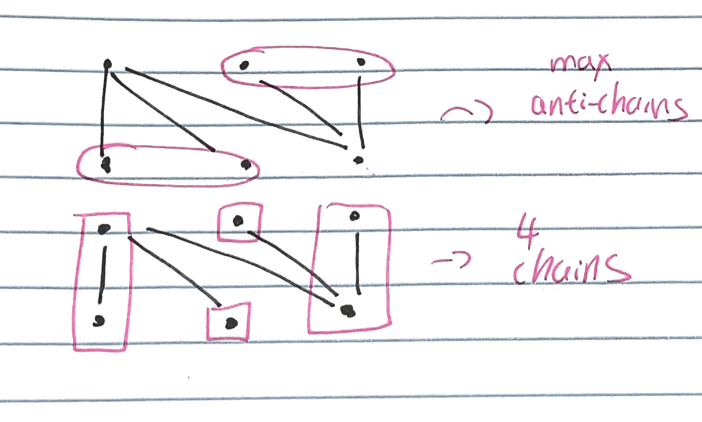 max
~> anti-chains
4
-> chains